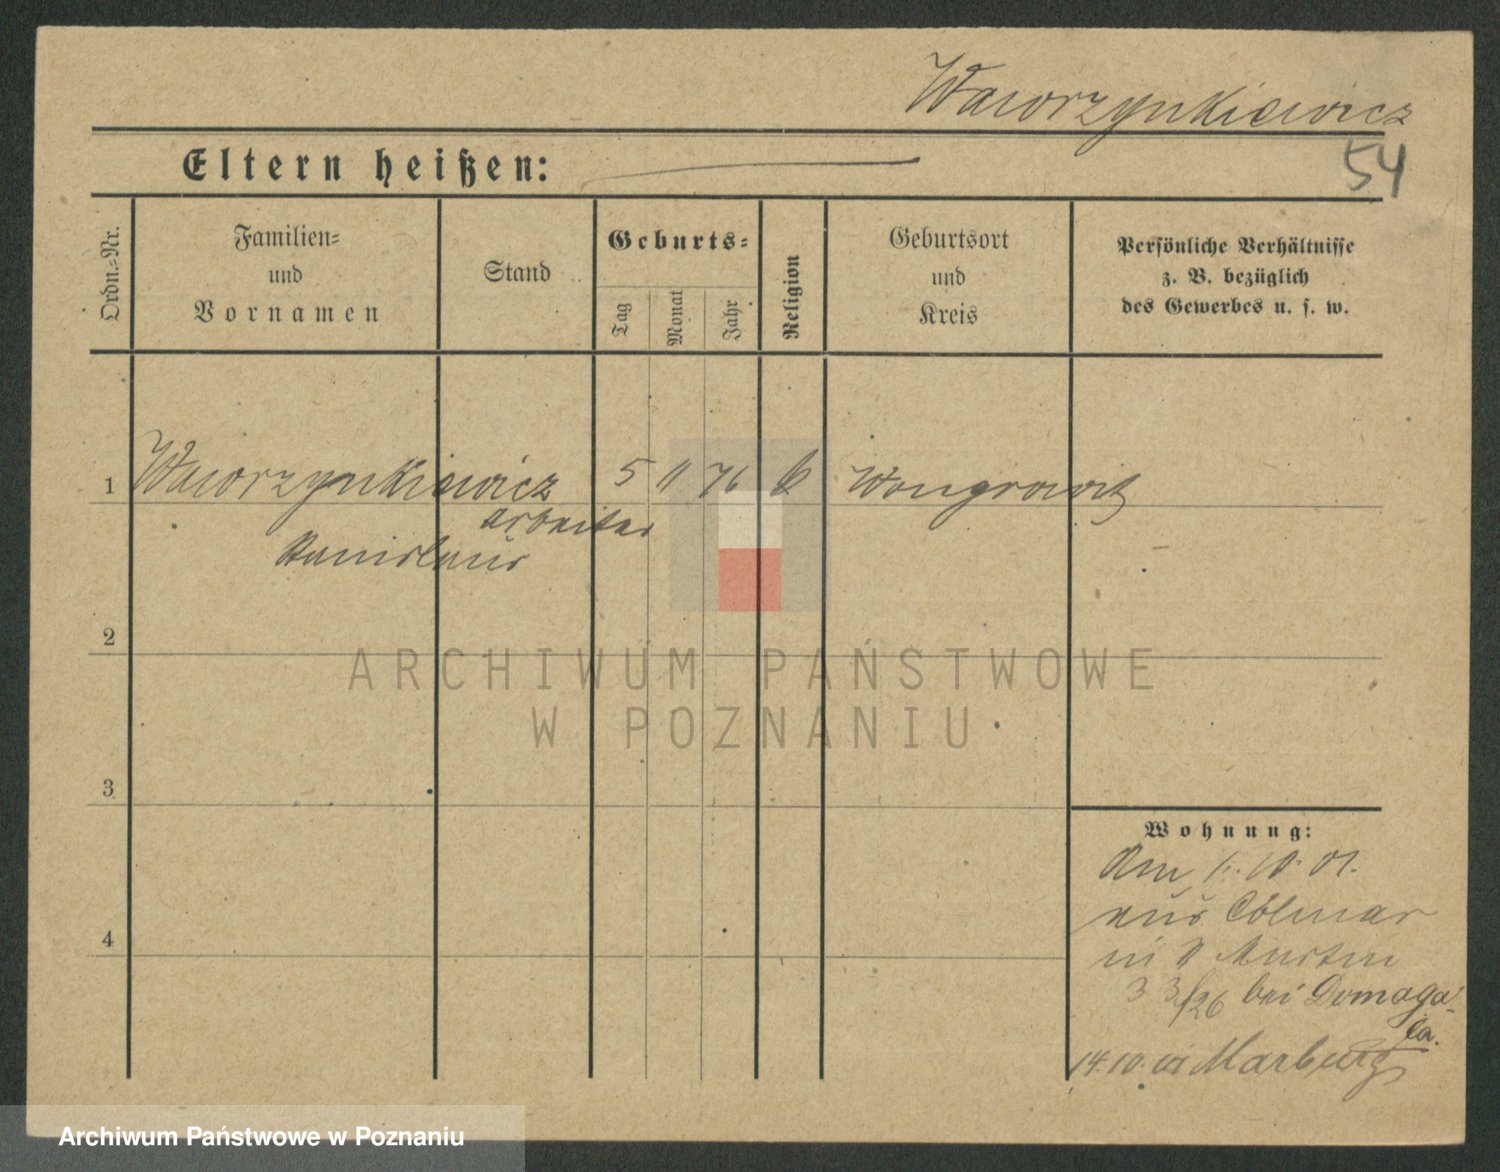 Waworzynkiewicz
54
Eltern heißen:
Ordn.-Nr.
Familien-
und
Vornamen
Stand
Geburts-
Tag
Monat
Jahr
Religion
Geburtsort
und
Kreis
Persönliche Verhältnisse
z. B. bezüglich
des Gewerbes u. s. w.
1 Waworzynkiewicz 5 11 76 k Wongrowitz
arbeiter
Stanislaus
2
ARCHIWUM PAŃSTWOWE
W POZNANIU
3
Wohnung:
Am 1. 10. 01.
aus Colmar
in
33/26 bei Domaga-
la.
4
14. 10. Marburg
Archiwum Państwowe w Poznaniu